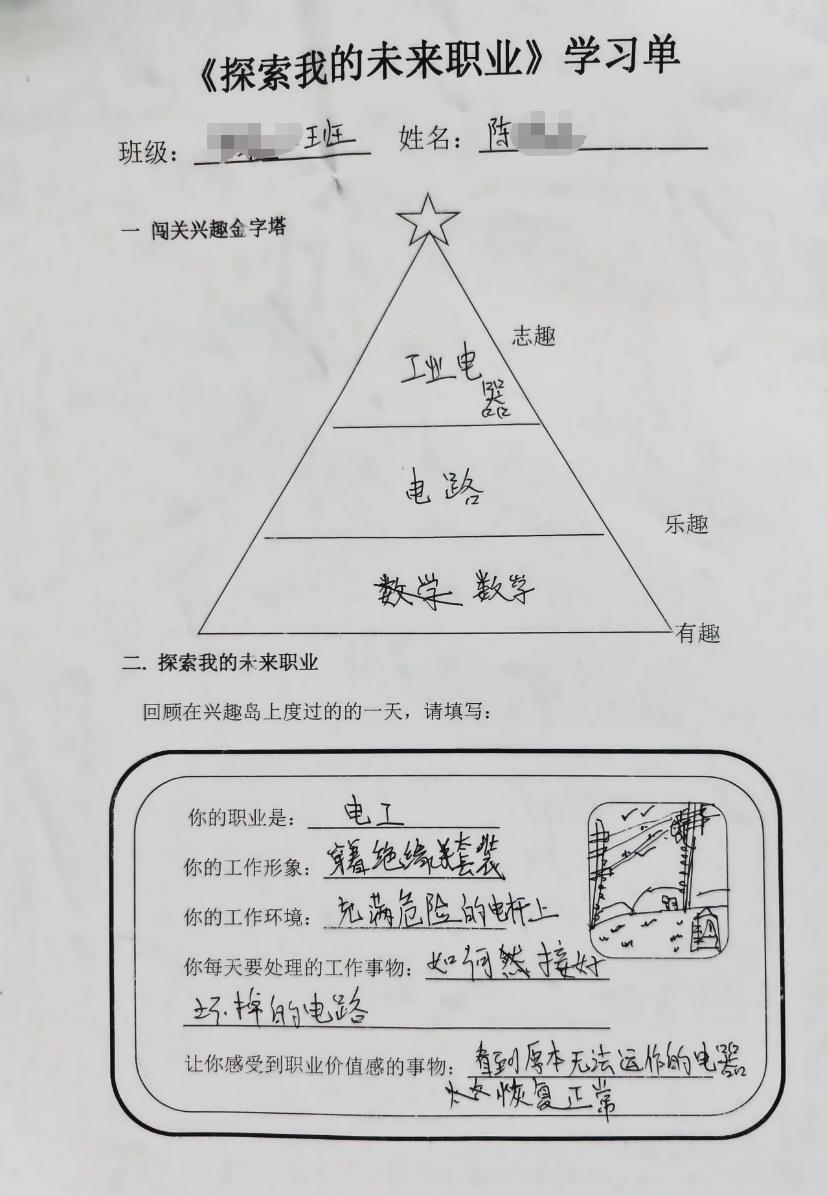 《探索我的未来职业》学习单
班级： 班 姓名：陈
一 闯关兴趣金字塔
志趣
工业电
器
电路
乐趣
数学 数学
有趣
二. 探索我的未来职业
回顾在兴趣岛上度过的的一天，请填写：
你的职业是： 电工
你的工作形象：穿着绝缘套装
你的工作环境：充满危险的电杆上
你每天要处理的工作事物：如何然接好
坏掉的电路
让你感受到职业价值感的事物：看到原本无法运作的电器
恢复正常